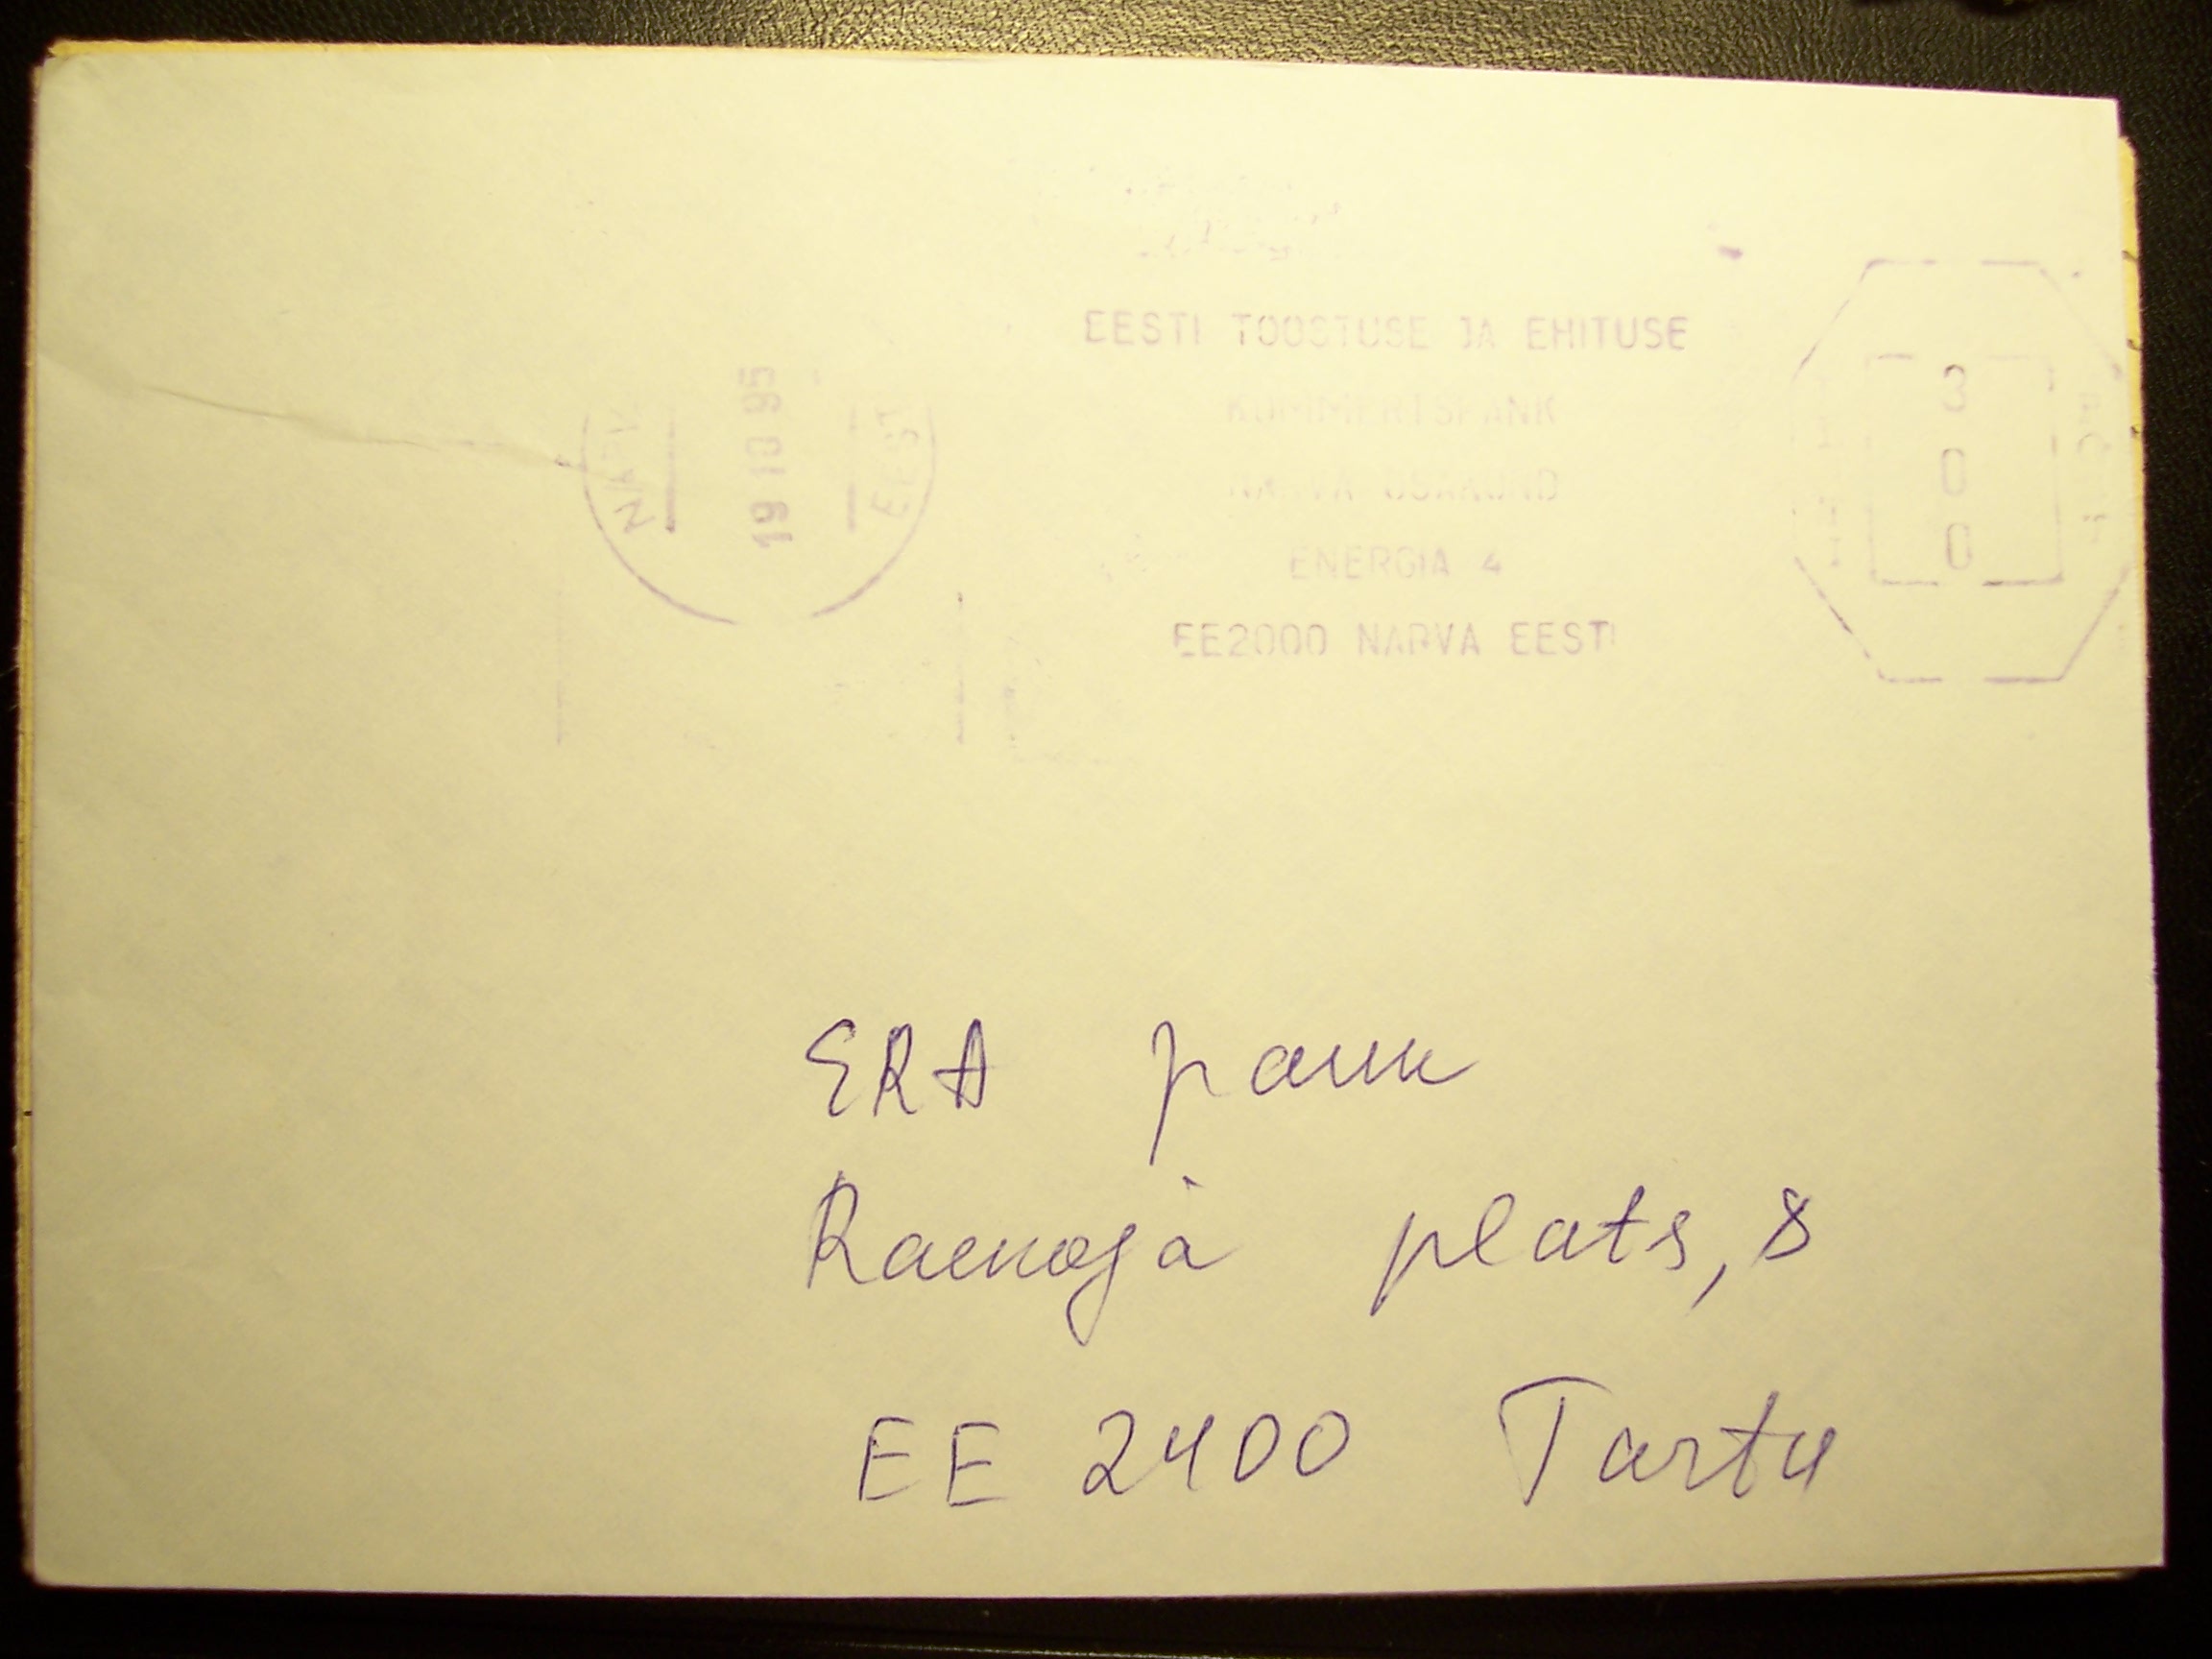 NARVA
19 10 95
EESTI
EESTI TOOSTUSE JA EHITUSE
KOMMERTSPANK
NARVA OSAKOND
ENERGIA 4
EE2000 NARVA EESTI
3
0
0
ERA pank
Raekoja plats, 8
EE 2400 Tartu